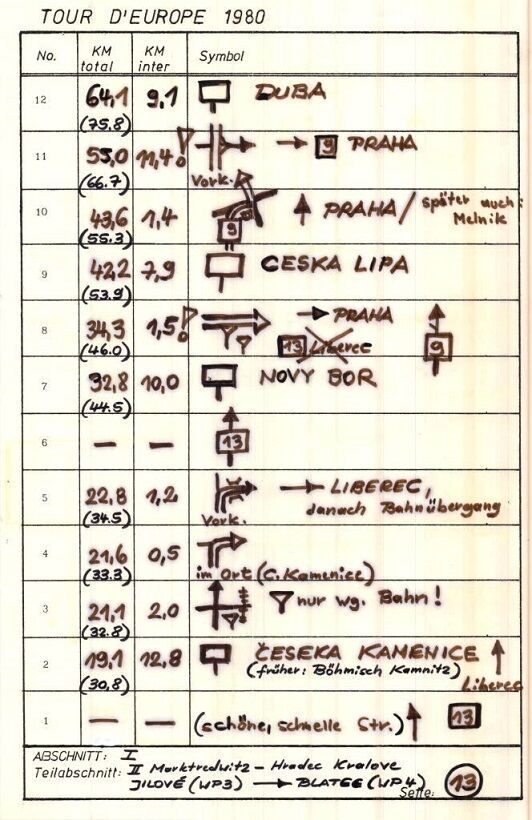 TOUR D'EUROPE 1980
No. KM total KM inter Symbol
12 64,1 (75.8) 9,1 DUBA
11 55,0 (66.7) 11,4 ! → 9 PRAHA
Vork.
10 43,6 (55.3) 1,4 9 PRAHA / später auch: Melnik
9 42,2 (53.9) 7,9 CESKA LIPA
8 34,3 (46.0) 1,5 ! → PRAHA
13 Liberec 9
7 32,8 (44.5) 10,0 NOVY BOR
6 — — 13
5 22,8 (34.5) 1,2 → LIBEREC,
Vork. danach Bahnübergang
4 21,6 (33.3) 0,5
im Ort (C. Kamenice)
3 21,1 (32.8) 2,0 nur wg. Bahn!
2 19,1 (30,8) 12,8 ČESEKA KAMENICE
(früher: Böhmisch Kamnitz) Liberec
1 — — (schöne, schnelle Str.) 13
ABSCHNITT: I
Teilabschnitt: II Marktredwitz - Hradec Kralove
JILOVÉ (WP3) → BLATCE (WP4) Seite: 13